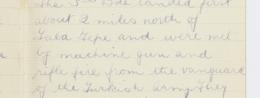 The 3rd Bde landed first
about 2 miles north of
Gaba Tepe and were met
by machine gun and
rifle fire from the vanguard
of the Turkish army they